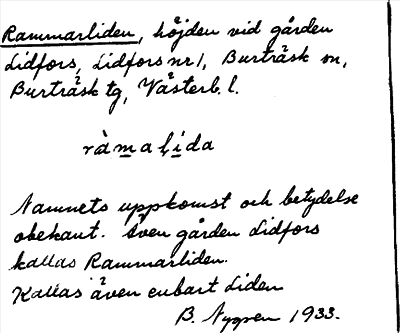 Rammarliden, höjden vid gården
Lidfors, Lidfors nr 1, Burträsk sn,
Burträsk tg, Västerb. l.
ràmaḷida
Namnets uppkomst och betydelse
obekant. Även gården Lidfors
kallas Rammarliden.
Kallas även enbart Liden
B. Nygren 1933.